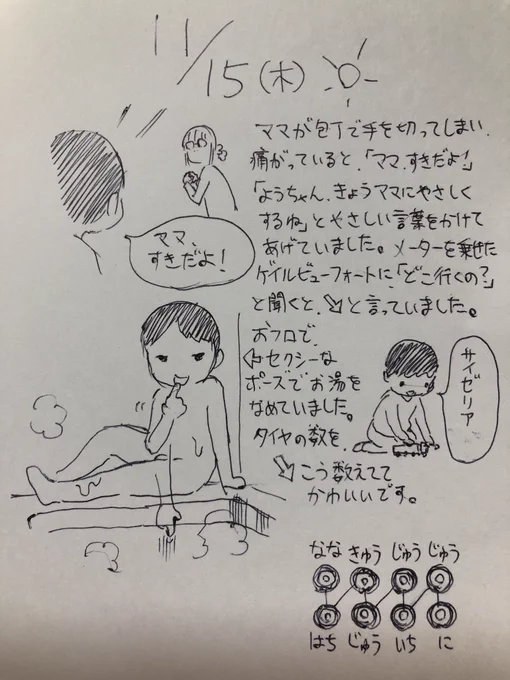 11/15(木)
ママが包丁で手を切ってしまい、
痛がっていると、「ママ、すきだよ!」
「ようちゃん、きょうママにやさしく
するね」とやさしい言葉をかけて
あげていました。メーターを乗せた
ゲイルビューフォートに、「どこ行くの?」
と聞くと、⇘と言っていました。
ママ、
すきだよ!
おフロで、
⇦セクシーな
ポーズでお湯を
なめていました。
タイヤの数を、
⇘こう数えてて
かわいいです。
サイゼリア
なな きゅう じゅう じゅう
はち じゅう いち に